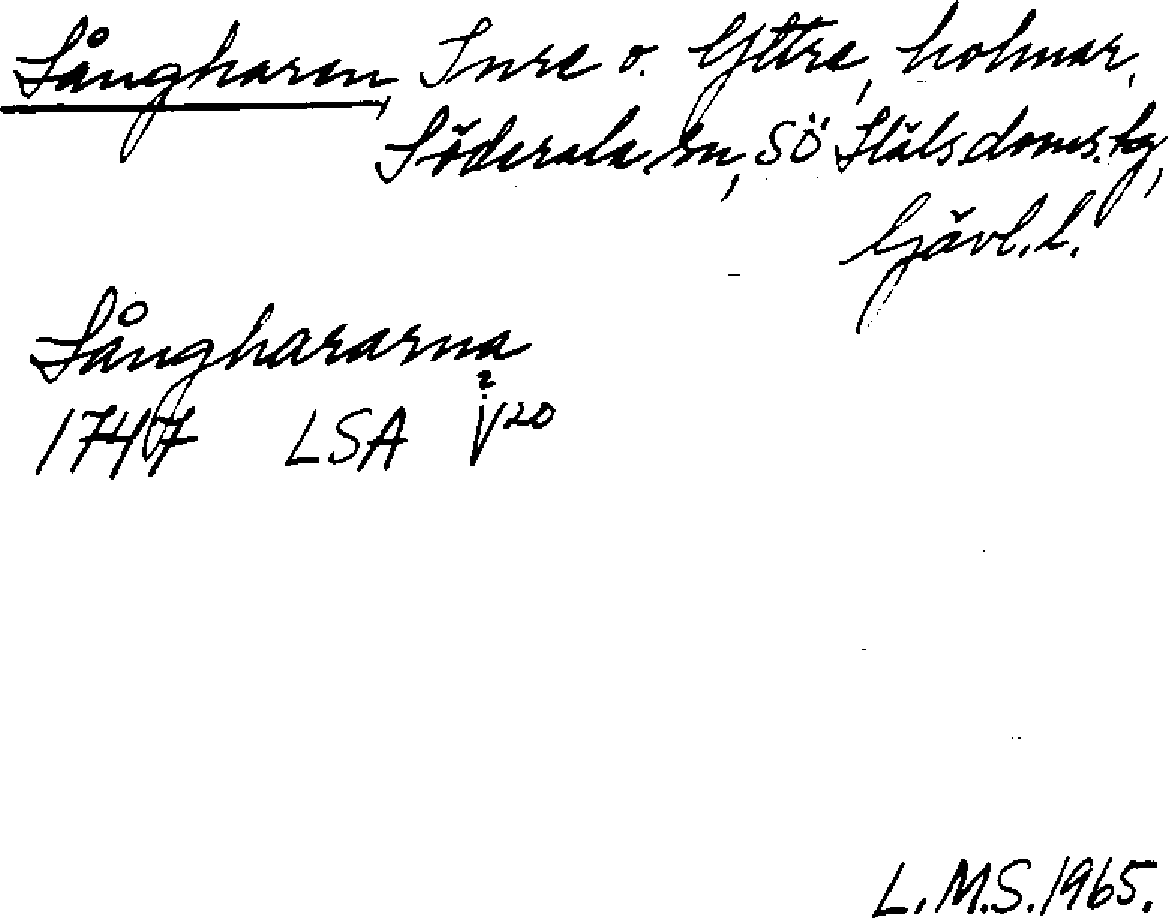 Långharen, Inre o. Yttre, holmar,
Söderala sn, SÖ Hälsdoms. tg,
Gävl. l.
Långhararna
1747 LSA
L.M.S. 1965.